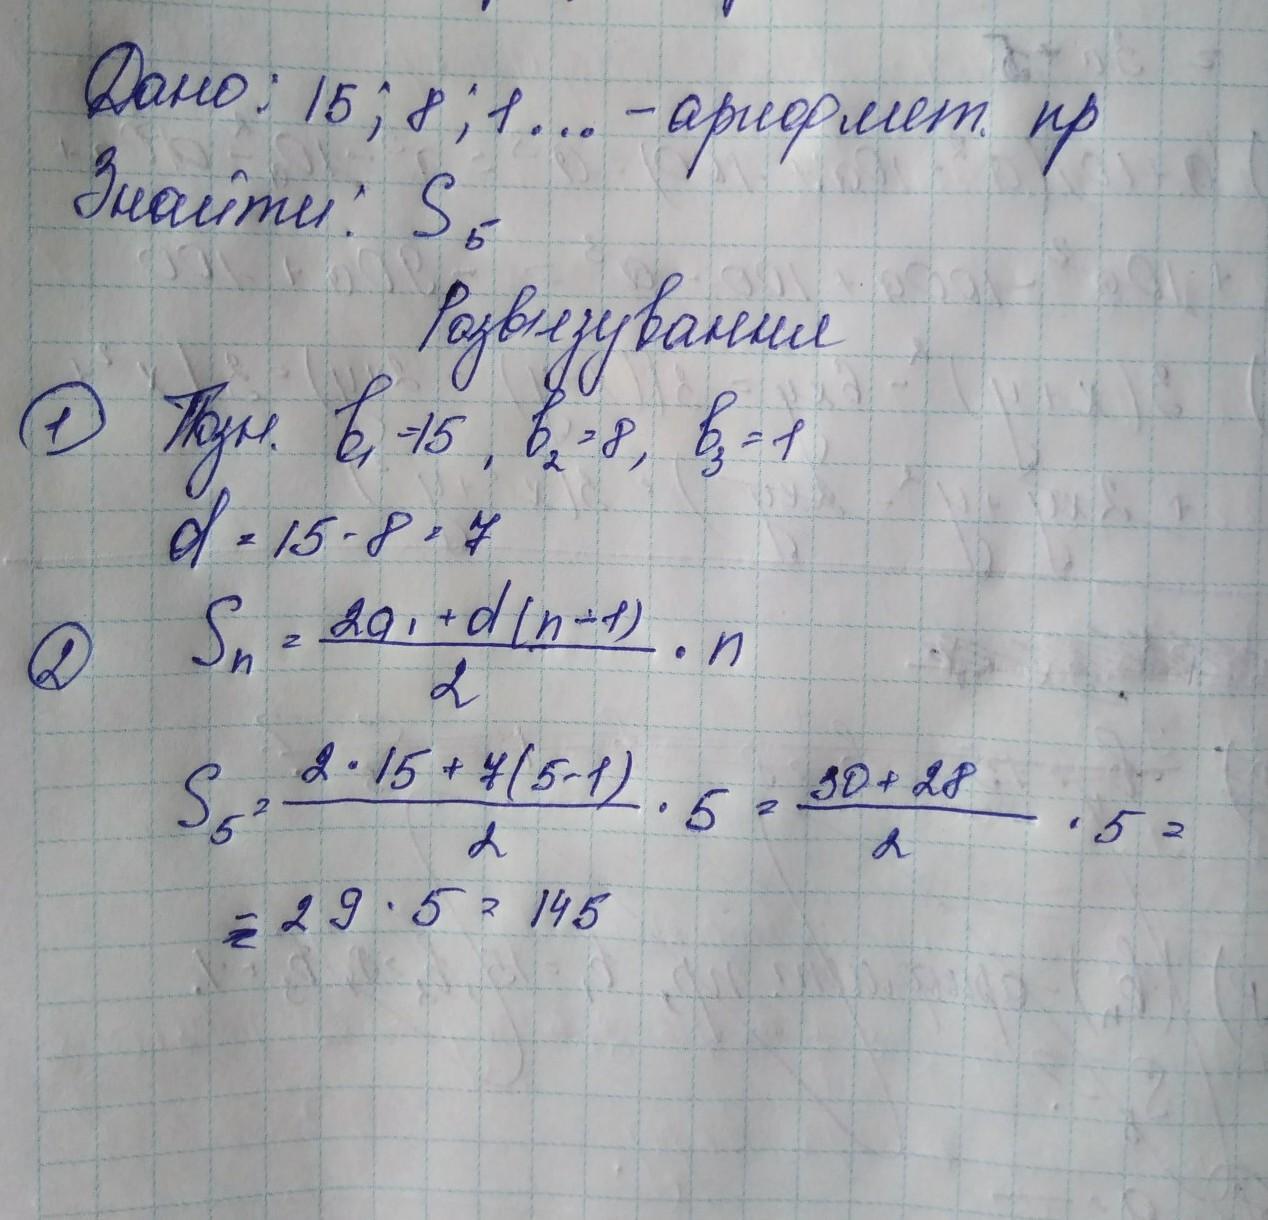 Дано: 15; 8; 1... - арифмет. пр
Знайти: S₅
Розв'язування
① Позн. b₁=15, b₂=8, b₃=1
d = 15 - 8 = 7
② Sₙ = (2a₁ + d(n-1))/2 · n
S₅ = (2·15 + 7(5-1))/2 · 5 = (30 + 28)/2 · 5 =
= 29 · 5 = 145